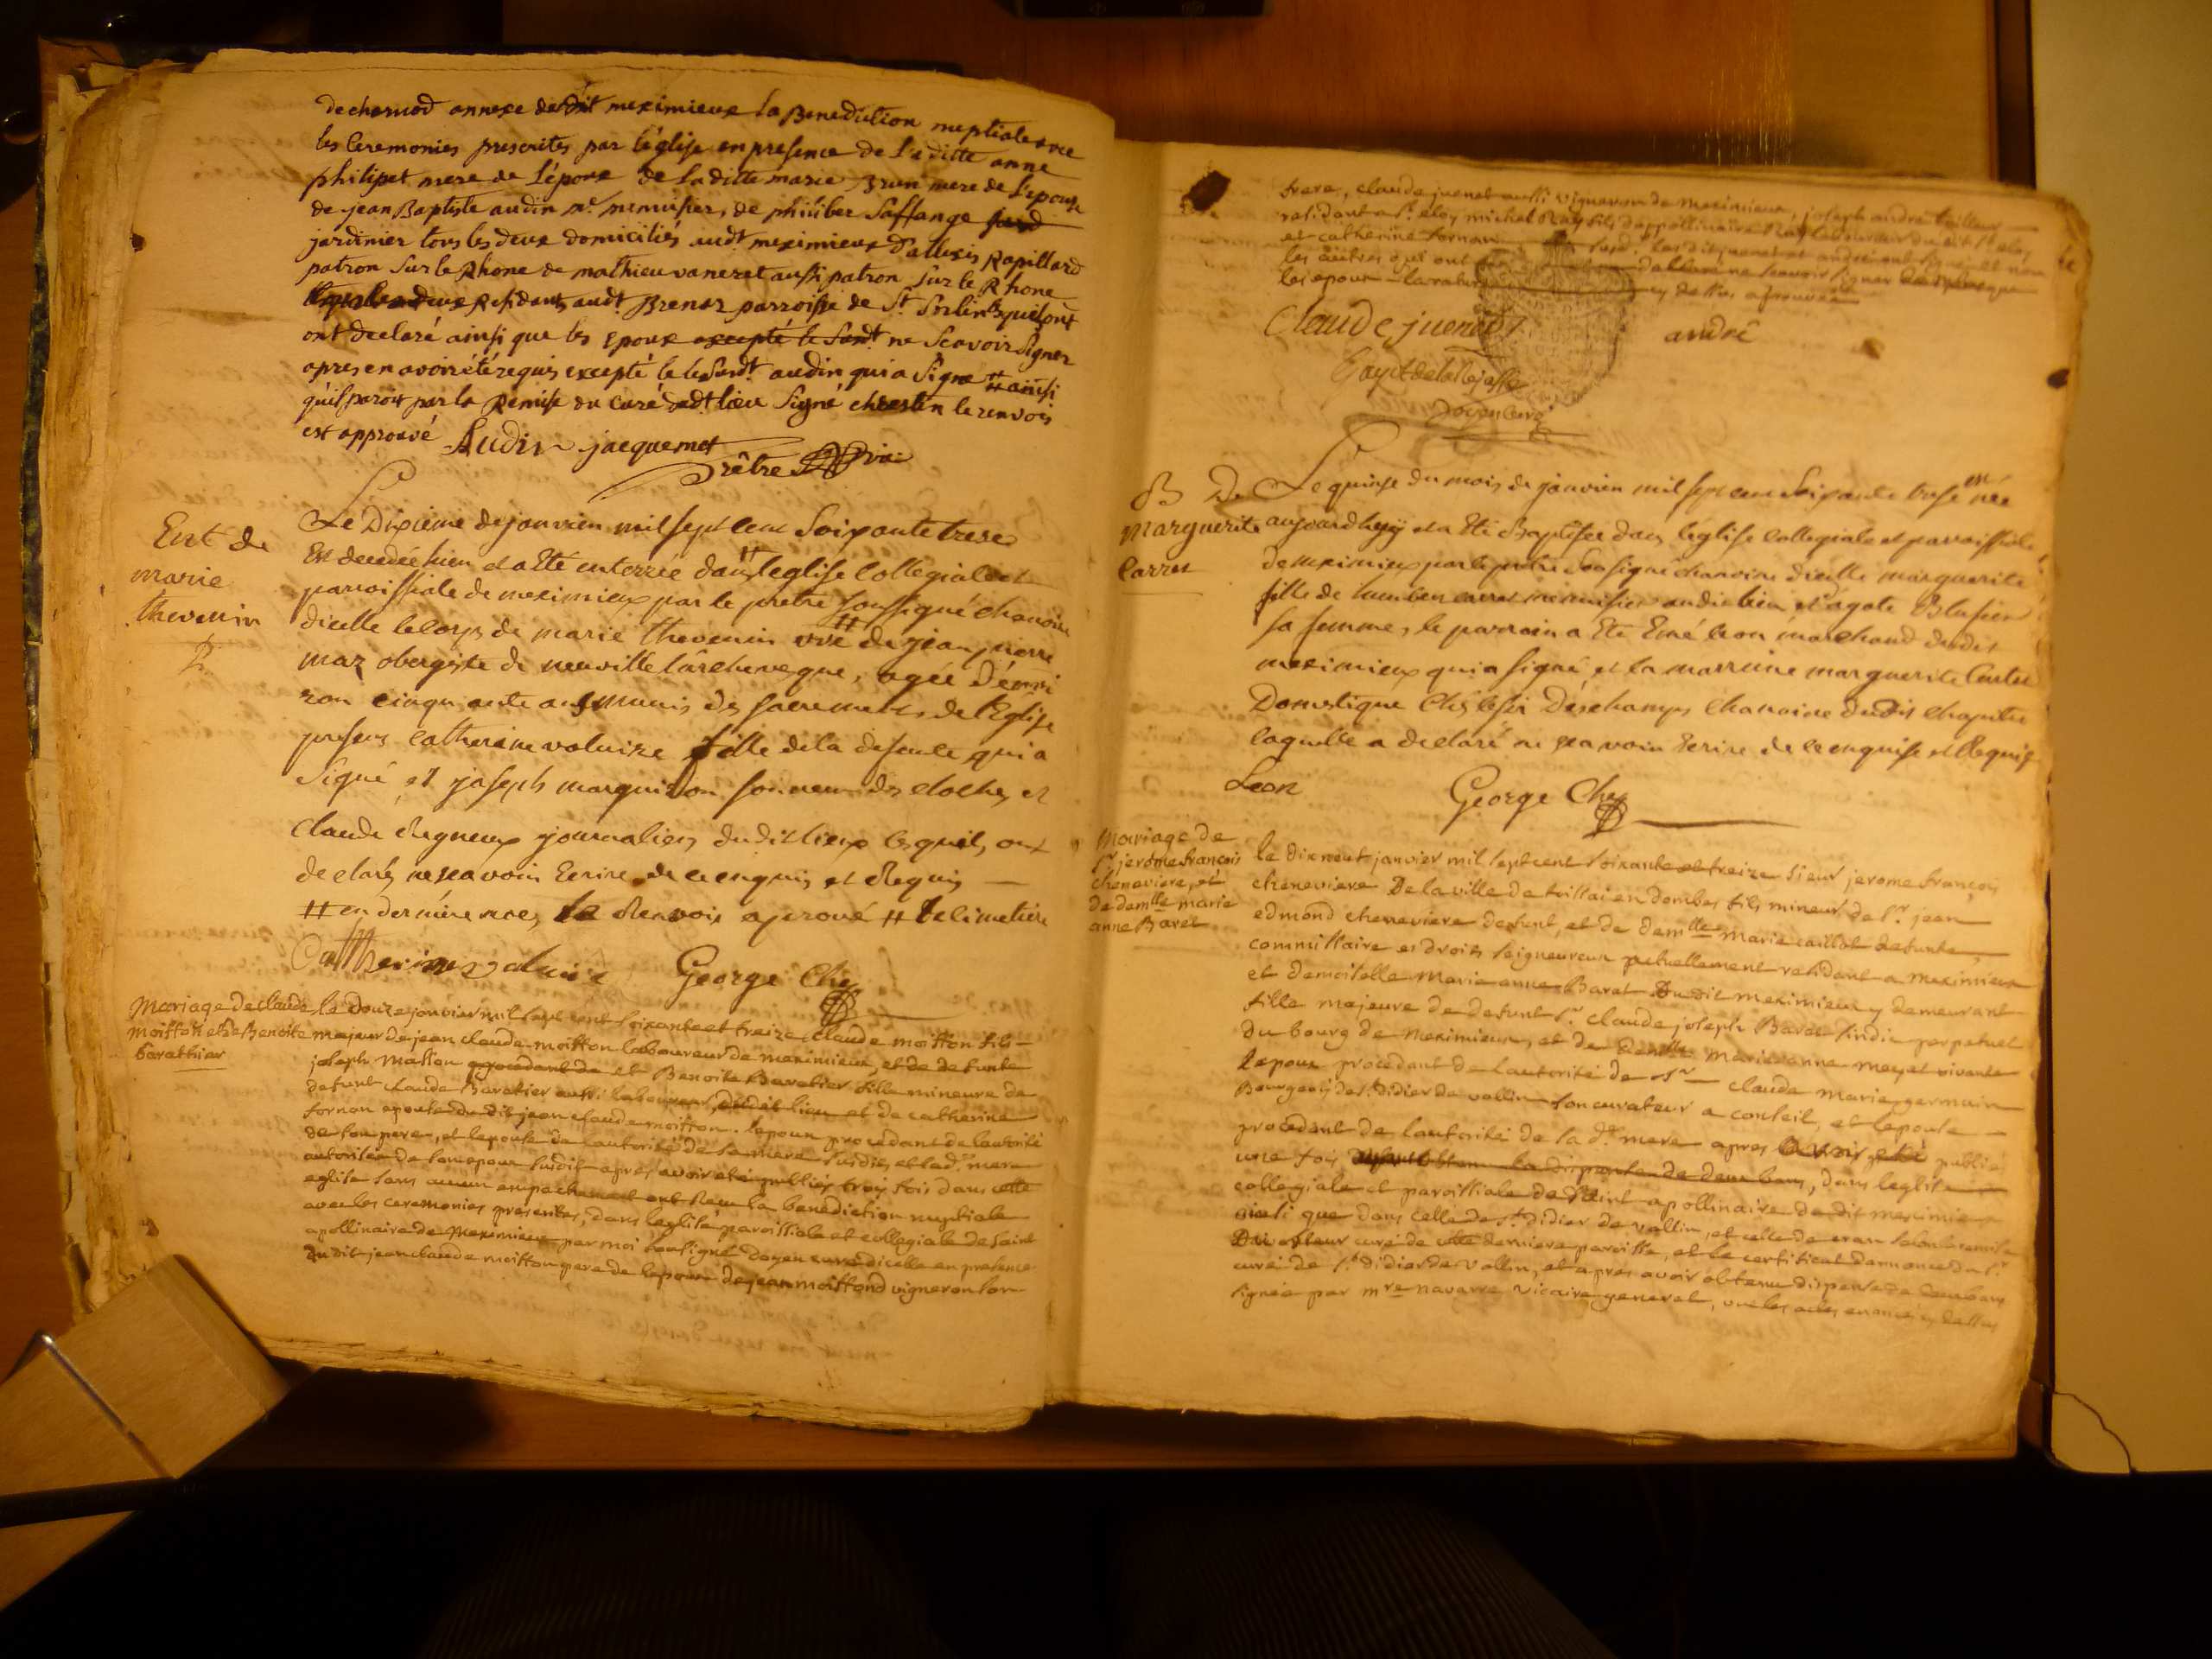 dechernod annexe dudit meximieux la Benediction nuptiale avec
les Ceremonies prescrites par l'église en presence de la ditte anne
philipet mere de l'époux de la ditte marie Brun mere de l'epouse
de jean Baptiste audin me menusier, de philiber Saffange
jardinier tous les deux domiciliés audt meximieux d'allexis Rapillard
patron sur le Rhone de mathieu vaneret aussi patron sur le Rhone
deux Residants audt Brenaz parroisse de St Sorlin
ont declaré ainsi que les Epoux excepté le susdt ne scavoir signer
apres en avoir été requis excepté le susdt audin qui a signe # ainsi
qu'il paroit par la Remise du curé dudt lieu signé le renvois
est approuvé Audin jacquemet
Prêtre
Ent de
marie
thevenin
Le Dixieme de janvier mil sept cent soixante trese
Est decedée hier et a Eté enterrée dans # l'eglise collegiale et
parroissiale de meximieux par le pretre soussigné chanoine
dicelle le corps de marie thevenin vve # de jean pierre
maz obergiste de neuville l'archeveque, agée d'envi
ron cinquante ans munis des sacrements de l'Eglise
presens catherine valuize fille de la defunte qui a
signé et joseph marguison sonneur des cloches et
Claude Regneux journaliers dudit lieux lesquels ont
declarés ne sca voir Ecrire de ce enquis et Requis
# en derniere noces le Renvois aprouvé # le cimetiere
Catherine valuise George Che
Mariage de claude
moisson et de Benoite
barathier
le douze janvier mil sept cent soixante et treize claude moisson fils
majeur de jean claude moisson laboureur de meximieux, et de defunte
joseph masson procedant de et Benoite Baratier fille mineure de
defunt claude Baratier aussi laboureur, dudit lieu et de catherine
fornon epouse du dit jean claude moisson. lepoux procedant de lautorité
de son pere, et lepouse de lautorité de sa mere susdits, et lad. mere
autorisée de son epoux susdit apres avoir eté publiés trois fois dans cette
eglise sans aucun empechement ont Recu la benediction nuptiale
avec les ceremonies prescrites, dans leglise paroissiale et collegiale de saint
apollinaire de Meximieux par moi soussigné doyen curé dicelle en presence
du dit jean claude moisson pere de lepoux de jean moissond vigneron son
frere, claude juenet aussi vigneron de meximieux, joseph andré tailleur
residant a St. eloy michel Ray fils dappollinaire Ray laboureur du dit St eloy
et catherine fornon
les autres qui ont declaré ne scavoir signer
les epoux la rature cy dessus aprouvée
Claude juenet andré
Gayet de la
Doyen curé
B De
Marguerite
Carret
Le quinse du mois de janvier mil sept cent soixante trese est née
aujourdhuy et a Eté Baptisée dans l'eglise collegiale et parroissiale
de meximieux par le pretre sousigné chanoine dicelle marguerite
fille de humber carret menuisier audit lieu et d'agate Blasier
sa femme, le parrain a Eté Emé leon marchand dudit
meximieux qui a signé et la marraine marguerite
Domestique Chés le sir Deschamps Chanoine dudit chapitre
laquelle a declaré ne sca voir Ecrire de ce enquise et Requise
Leon George Che
Mariage de
sr. jerome francois
cheneviere, et
de demlle marie
anne Baret
le dix neuf janvier mil sept cent soixante et treize sieur jerome francois
cheneviere De la ville de trissai en dombes fils mineur de sr. jean
edmond cheneviere defunt, et de demlle marie caillot defunte,
commissaire es droits seigneuriaux actuellement residant a meximieux
et demoiselle Marie anne Barat Du dit meximieux y demeurant
fille majeure de defunt sr. claude joseph Barat sindic perpetuel
du bourg de meximieux, et de demlle Marie anne vivante
lepoux procedant de lautorité de sr claude marie germain
Bourgeois de st. didier de vallin son curateur a conseil, et lepouse
procedant de lautorité de sa de. mere apres avoir eté publié
une fois la dispense de deux bans, dans leglise
collegiale et paroissiale de saint apollinaire de dit meximieux
ainsi que dans celle de st. didier de vallin, et celle de cran selon la remise
curé de cette derniere paroisse, et le certificat dannonce du sr.
curé de st. didier de vallin, et apres avoir obtenu dispense de deux bans
signée par mre navarre vicaire general, vue les actes enoncés cy dessus